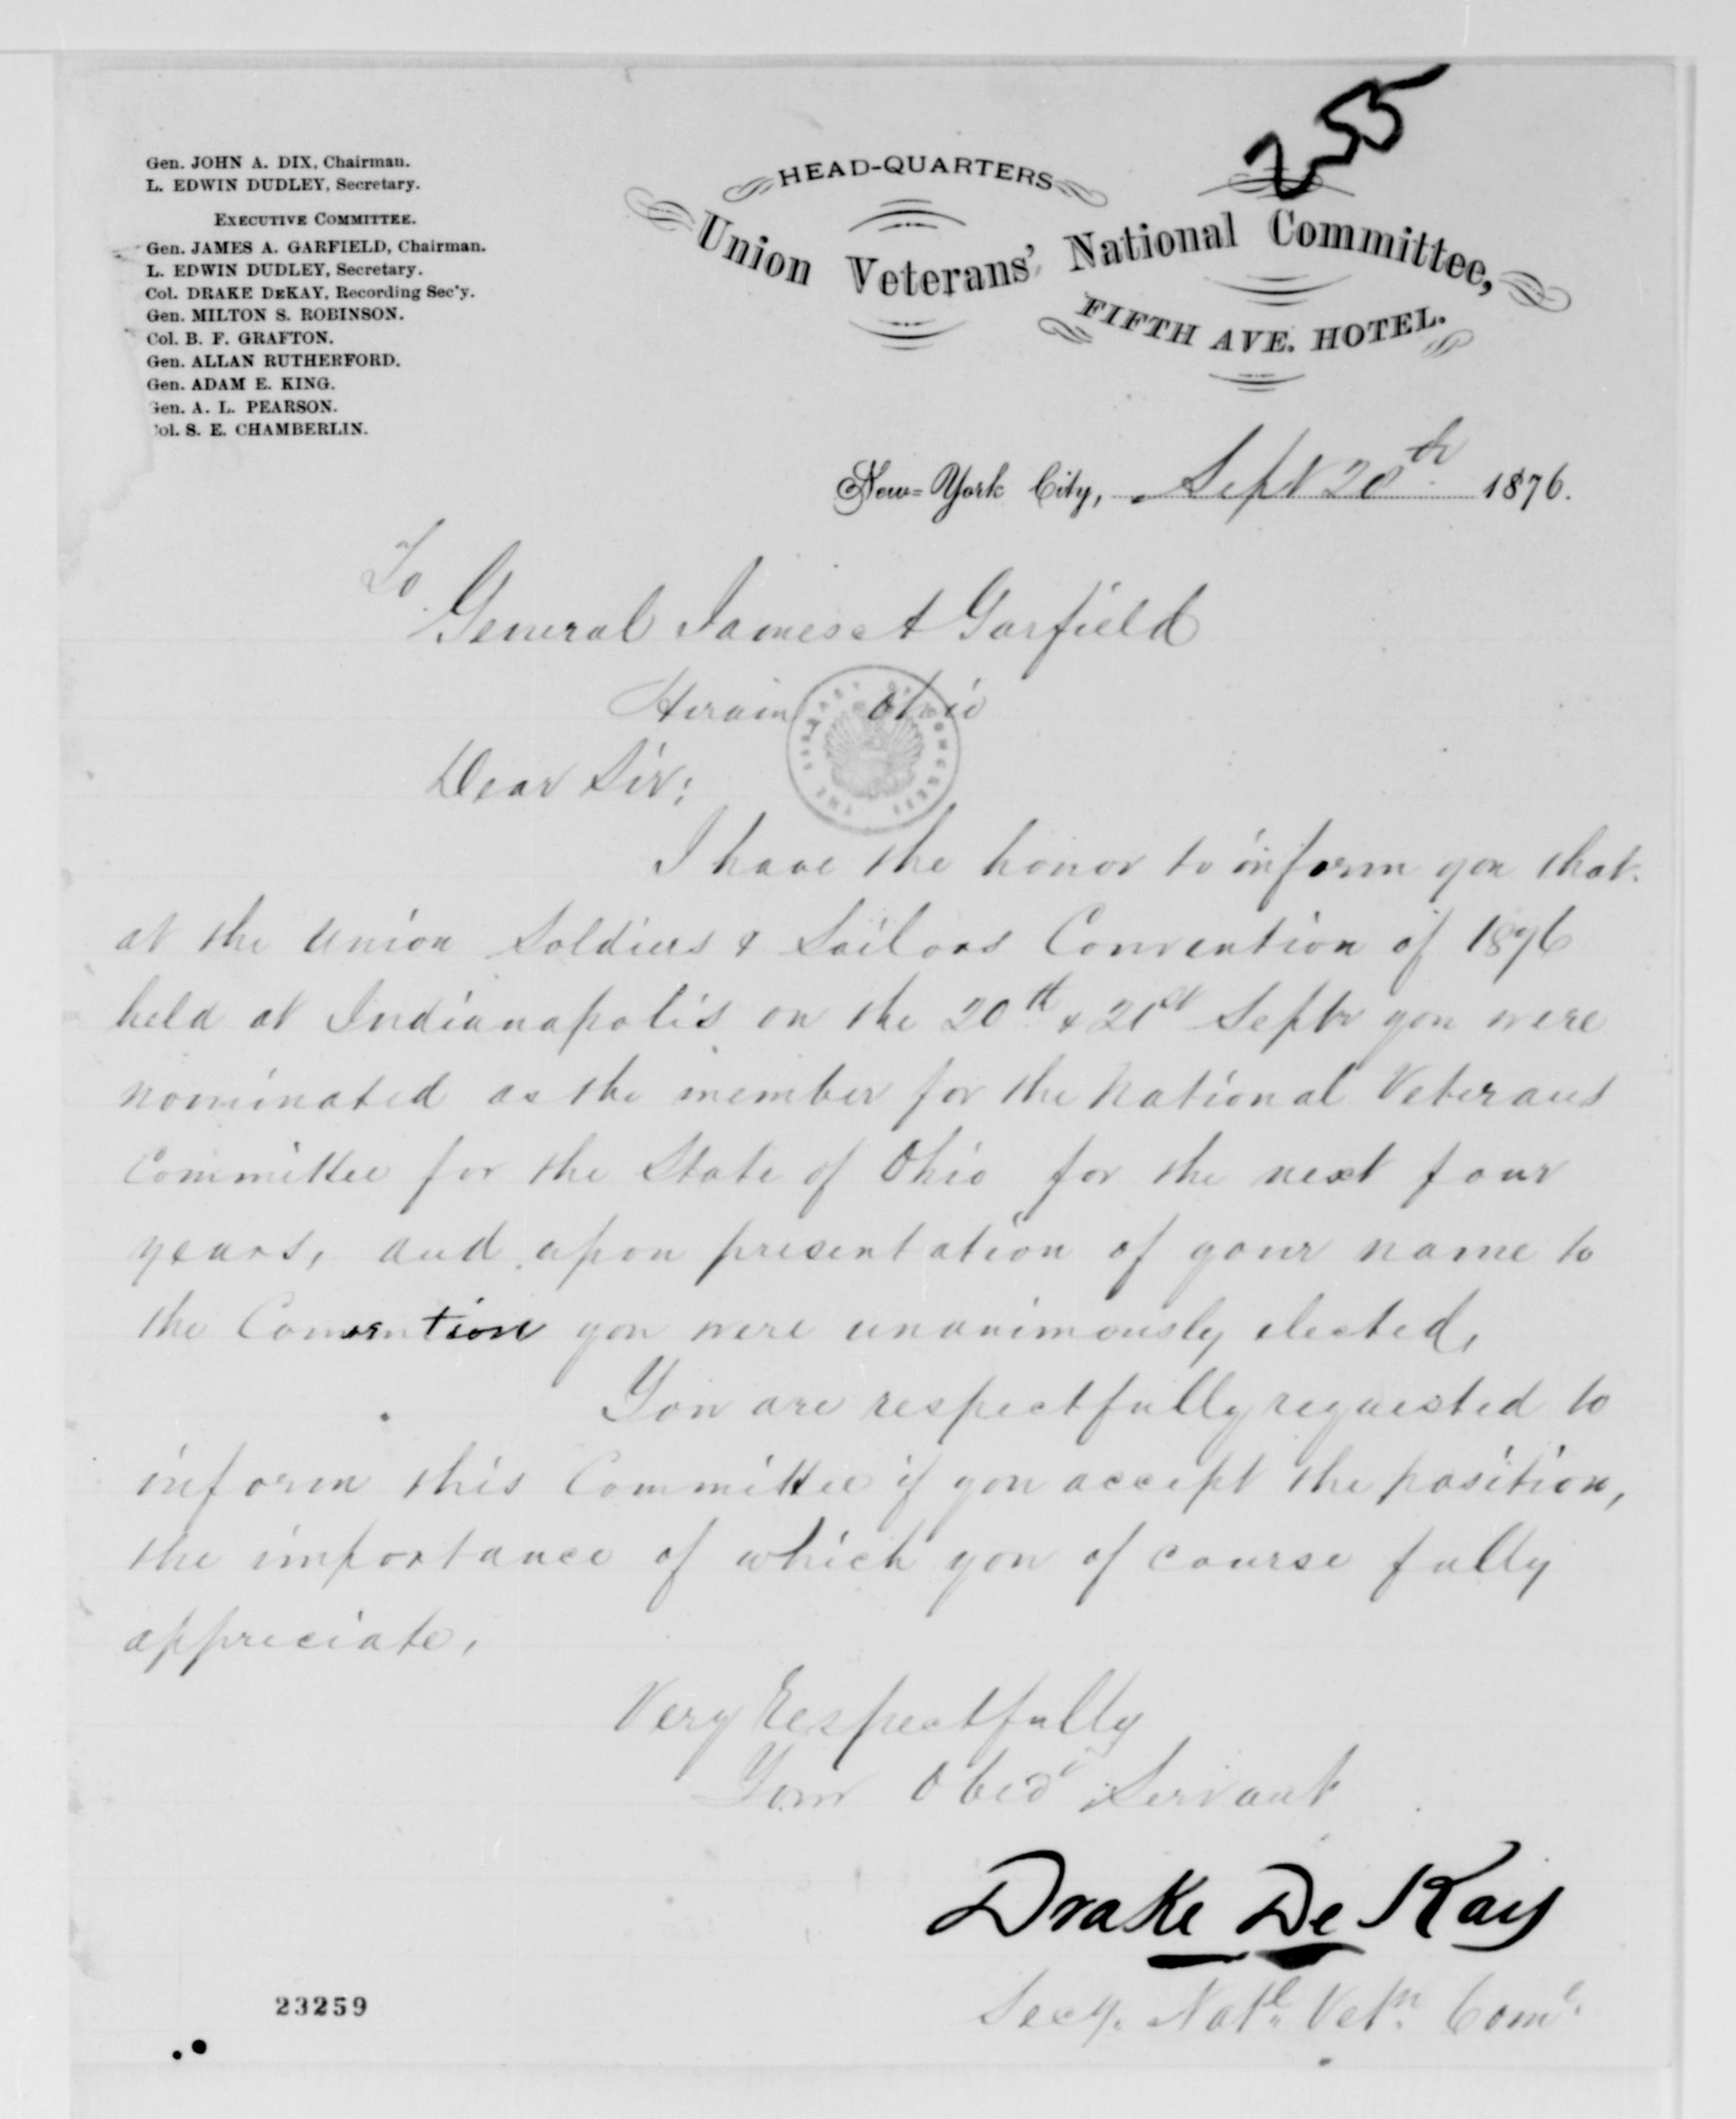 255
Gen. JOHN A. DIX, Chairman.
L. EDWIN DUDLEY, Secretary.
EXECUTIVE COMMITTEE.
Gen. JAMES A. GARFIELD, Chairman.
L. EDWIN DUDLEY, Secretary.
Col. DRAKE DEKAY, Recording Sec'y.
Gen. MILTON S. ROBINSON.
Col. B. F. GRAFTON.
Gen. ALLAN RUTHERFORD.
Gen. ADAM E. KING.
Gen. A. L. PEARSON.
Col. S. E. CHAMBERLIN.
HEAD-QUARTERS
Union Veterans' National Committee,
FIFTH AVE. HOTEL.
New-York City, Sept 20th 1876.
To
General James A Garfield
Hiram Ohio
THE LIBRARY OF CONGRESS
Dear Sir:
I have the honor to inform you that
at the Union Soldiers & Sailors Convention of 1876
held at Indianapolis on the 20th & 21st Septr you were
nominated as the member for the National Veterans
Committee for the State of Ohio for the next four
years, and upon presentation of your name to
the Convention you were unanimously elected,
You are respectfully requested to
inform this Committee if you accept the position,
the importance of which you of course fully
appreciate,
Very Respectfully
Your Obed Servant
Drake De Kay
Secy. Natl. Vetn. Come.
23259